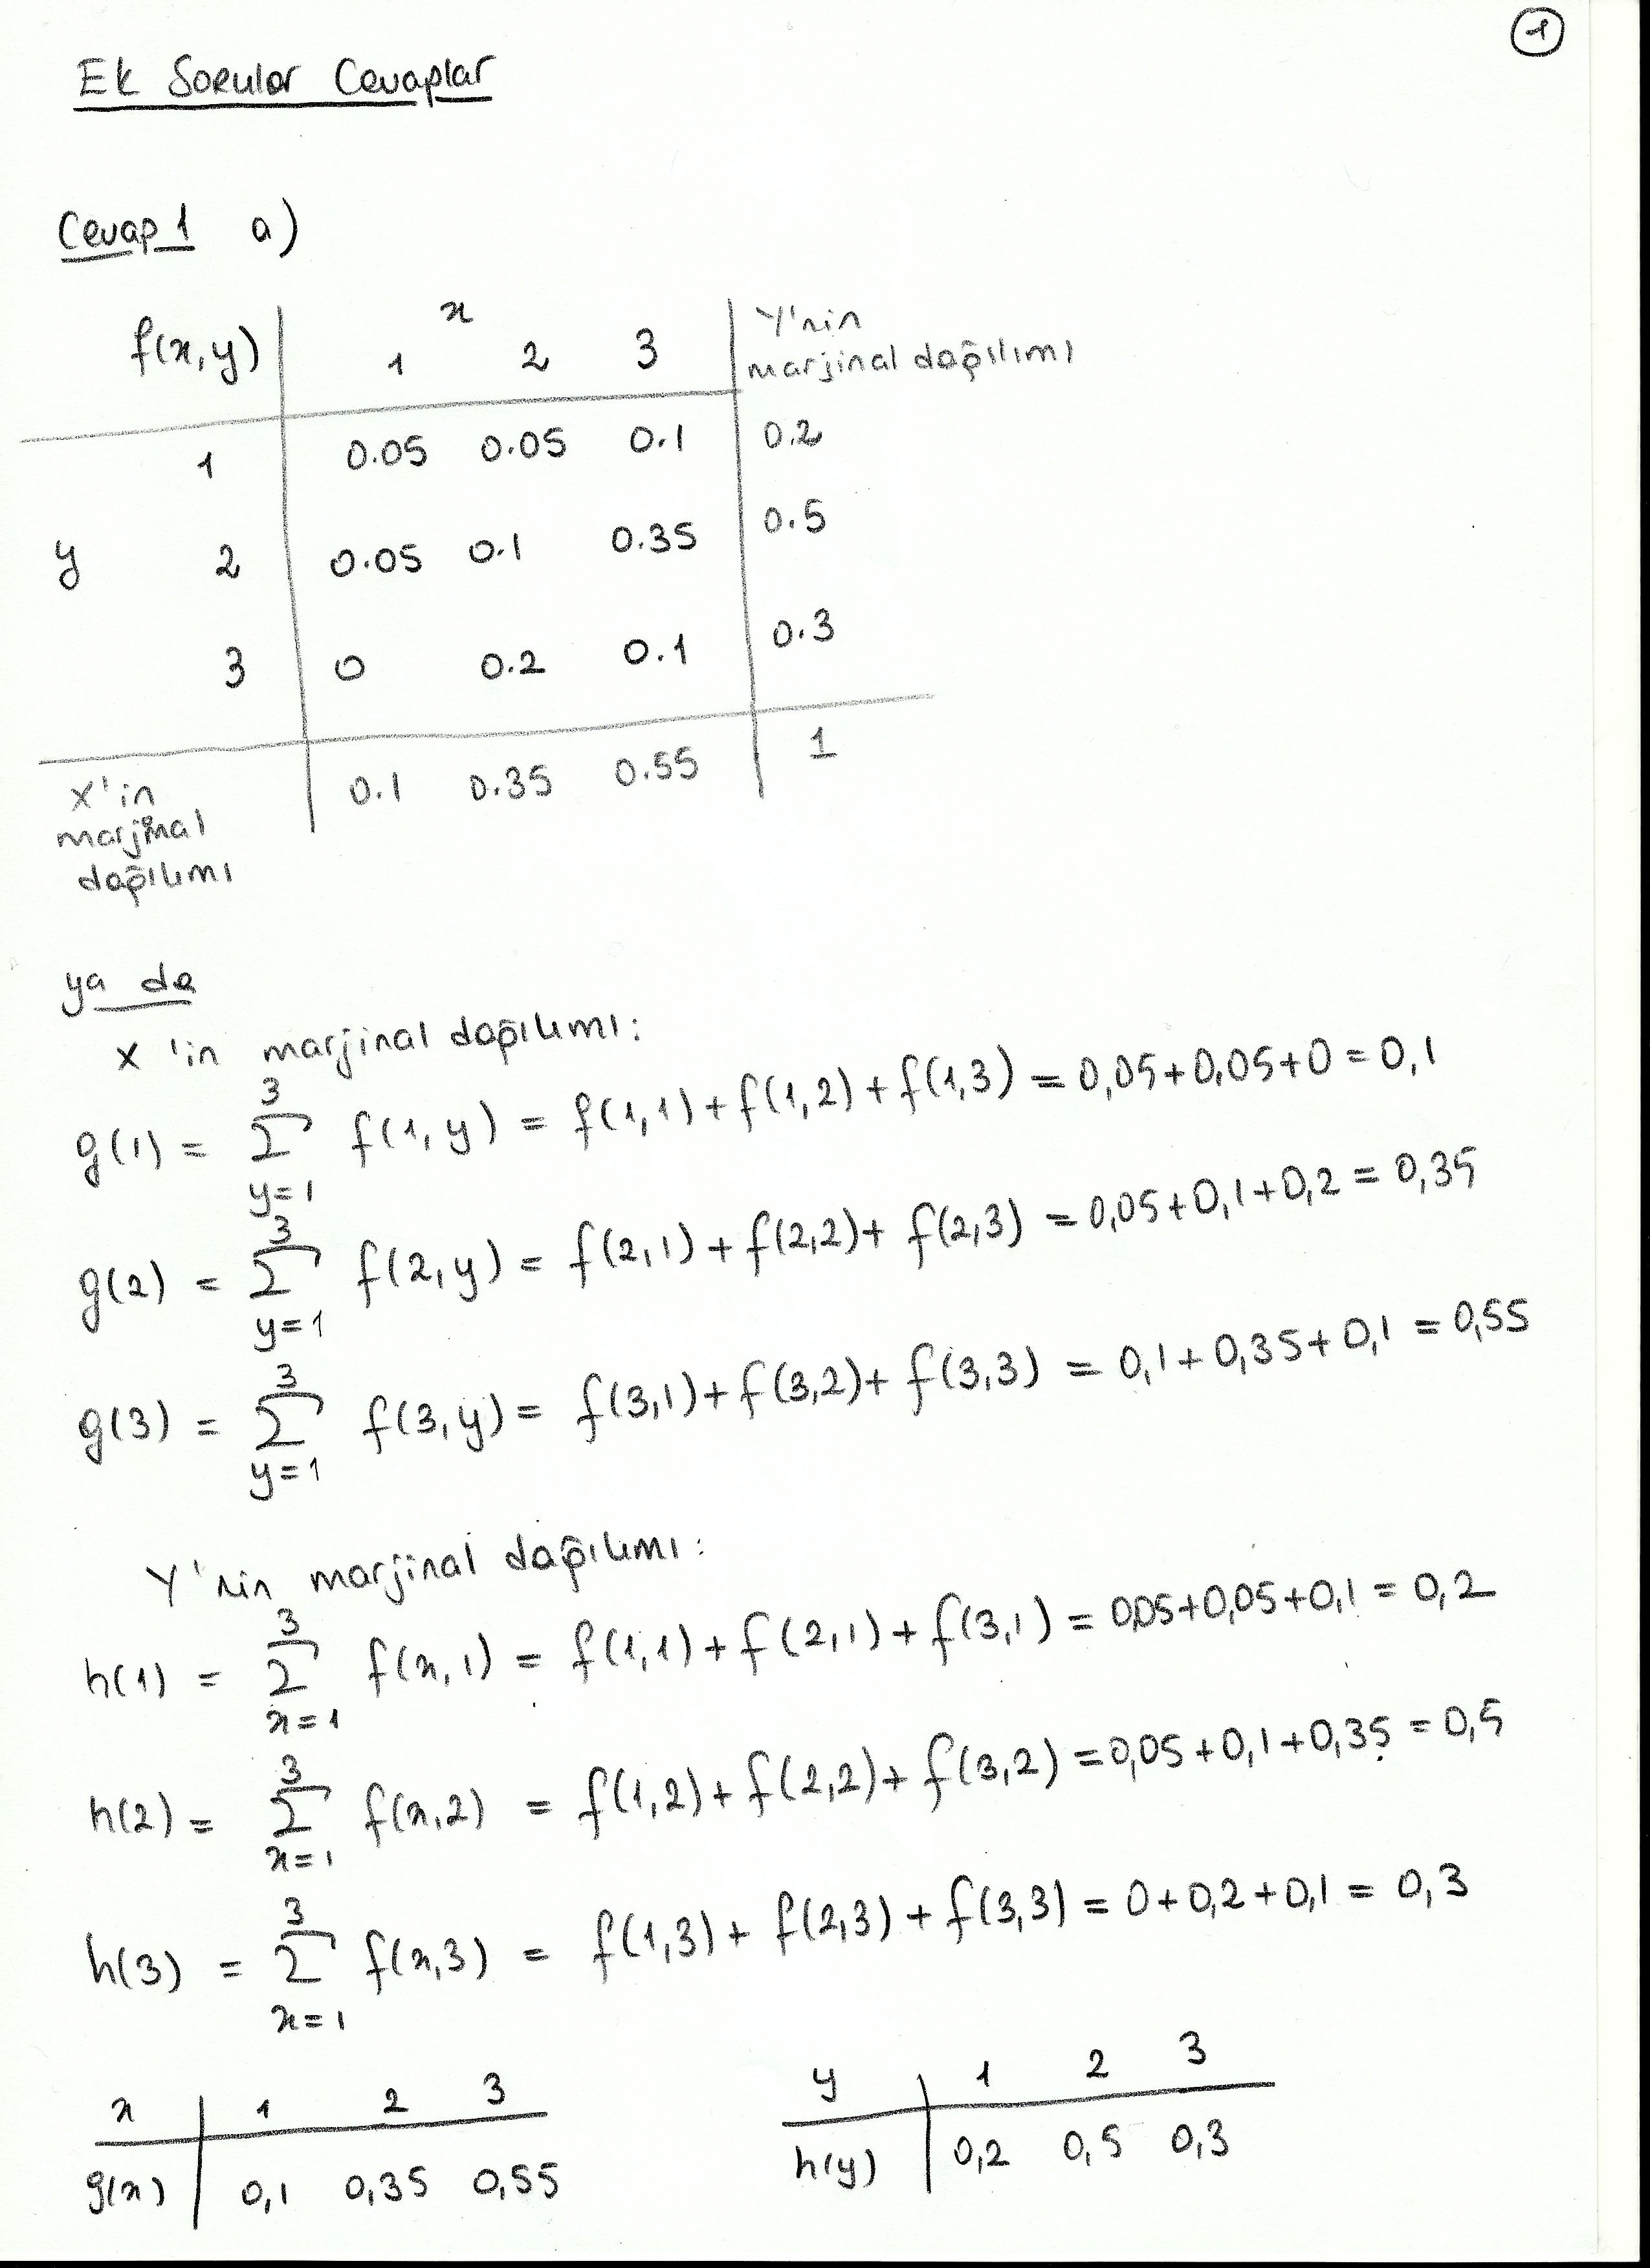 1
Ek Sorular Cevaplar
Cevap 1 a)
f(x,y) x Y'nin
1 2 3 marjinal dağılımı
1 0.05 0.05 0.1 0.2
y 2 0.05 0.1 0.35 0.5
3 0 0.2 0.1 0.3
X'in 0.1 0.35 0.55 1
marjinal
dağılımı
ya da
X'in marjinal dağılımı:
g(1) = ∑_{y=1}^{3} f(1,y) = f(1,1)+f(1,2)+f(1,3) = 0,05+0,05+0 = 0,1
g(2) = ∑_{y=1}^{3} f(2,y) = f(2,1)+f(2,2)+f(2,3) = 0,05+0,1+0,2 = 0,35
g(3) = ∑_{y=1}^{3} f(3,y) = f(3,1)+f(3,2)+f(3,3) = 0,1+0,35+0,1 = 0,55
Y'nin marjinal dağılımı:
h(1) = ∑_{x=1}^{3} f(x,1) = f(1,1)+f(2,1)+f(3,1) = 0,05+0,05+0,1 = 0,2
h(2) = ∑_{x=1}^{3} f(x,2) = f(1,2)+f(2,2)+f(3,2) = 0,05+0,1+0,35 = 0,5
h(3) = ∑_{x=1}^{3} f(x,3) = f(1,3)+f(2,3)+f(3,3) = 0+0,2+0,1 = 0,3
x 1 2 3
g(x) 0,1 0,35 0,55
y 1 2 3
h(y) 0,2 0,5 0,3